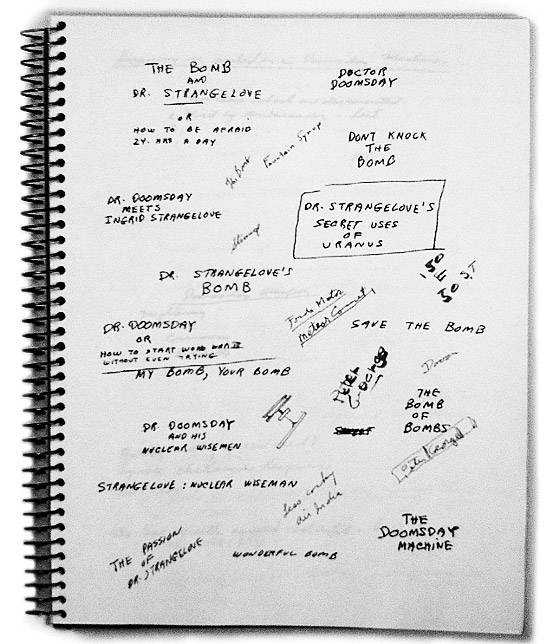 THE BOMB
AND
DR. STRANGELOVE
OR
HOW TO BE AFRAID
24 HRS A DAY
DOCTOR
DOOMSDAY
DONT KNOCK
THE
BOMB
DR. DOOMSDAY
MEETS
INGRID STRANGELOVE
DR. STRANGELOVE'S
SECRET USES
OF
URANUS
DR. STRANGELOVE'S
BOMB
DR. DOOMSDAY
OR
HOW TO START WORLD WAR III
WITHOUT EVEN TRYING
SAVE THE BOMB
MY BOMB, YOUR BOMB
Peter
George
THE
BOMB
OF
BOMBS
DR DOOMSDAY
AND HIS
NUCLEAR WISEMEN
Peter George
STRANGELOVE : NUCLEAR WISEMAN
air India
THE PASSION
OF
DR. STRANGELOVE
WONDERFUL BOMB
THE
DOOMSDAY
MACHINE